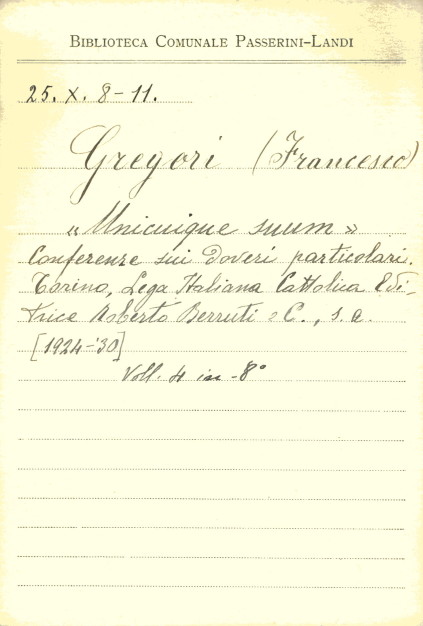 BIBLIOTECA COMUNALE PASSERINI-LANDI
25. X. 8-11.
Gregori (Francesco)
"Unicuique suum"
Conferenze sui doveri particolari.
Torino, Lega Italiana Cattolica Edi-
trice Roberto Berruti e C., s. a.
[1924-'30]
Voll. 4 in-8°